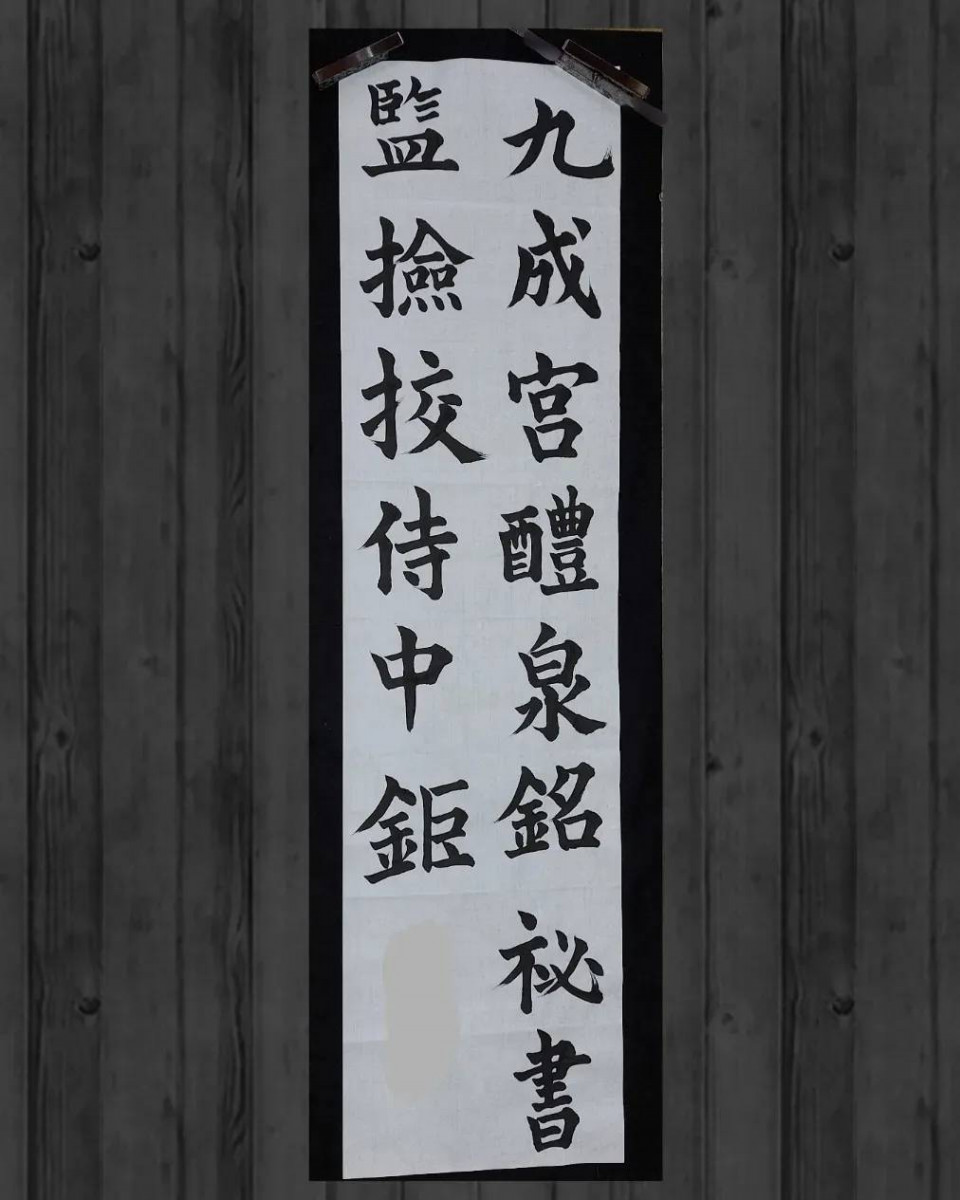 九成宮醴泉銘祕書
監撿挍侍中鉅